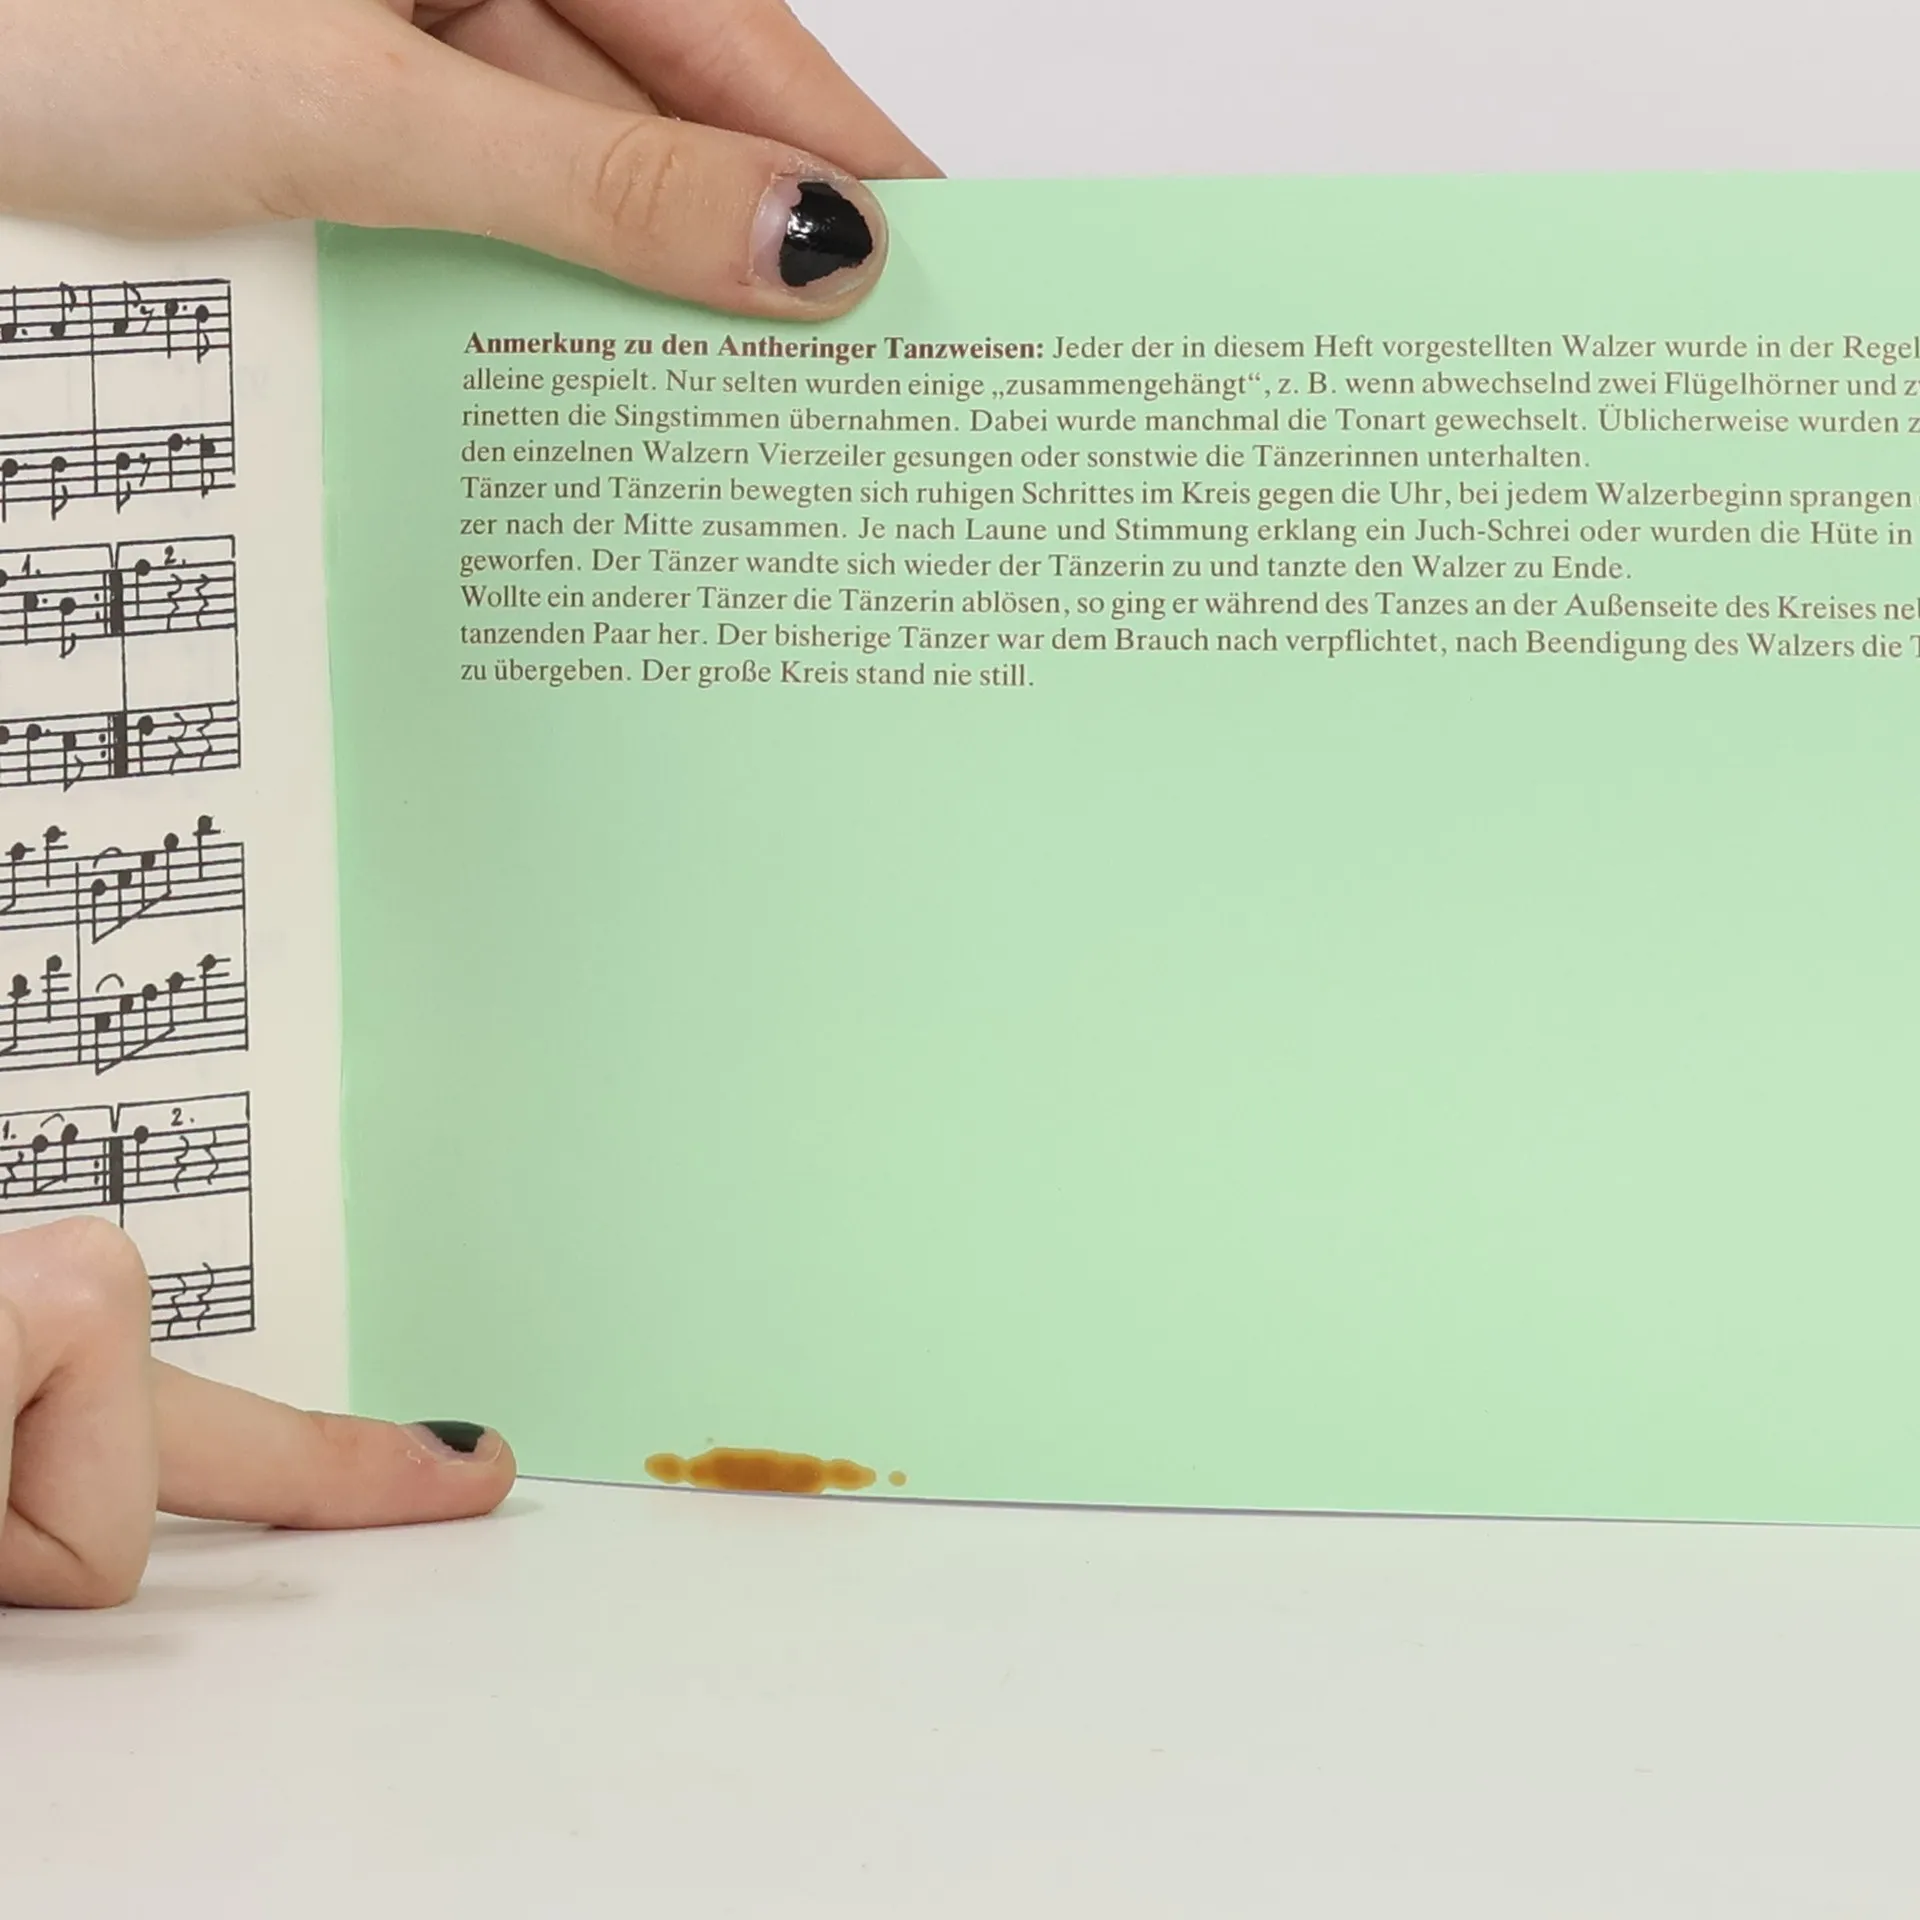 1.
2.
1.
2.
Anmerkung zu den Antheringer Tanzweisen: Jeder der in diesem Heft vorgestellten Walzer wurde in der Regel
alleine gespielt. Nur selten wurden einige „zusammengehängt“, z. B. wenn abwechselnd zwei Flügelhörner und
rinetten die Singstimmen übernahmen. Dabei wurde manchmal die Tonart gewechselt. Üblicherweise wurden
den einzelnen Walzern Vierzeiler gesungen oder sonstwie die Tänzerinnen unterhalten.
Tänzer und Tänzerin bewegten sich ruhigen Schrittes im Kreis gegen die Uhr, bei jedem Walzerbeginn sprangen
zer nach der Mitte zusammen. Je nach Laune und Stimmung erklang ein Juch-Schrei oder wurden die Hüte in
geworfen. Der Tänzer wandte sich wieder der Tänzerin zu und tanzte den Walzer zu Ende.
Wollte ein anderer Tänzer die Tänzerin ablösen, so ging er während des Tanzes an der Außenseite des Kreises
tanzenden Paar her. Der bisherige Tänzer war dem Brauch nach verpflichtet, nach Beendigung des Walzers die
zu übergeben. Der große Kreis stand nie still.